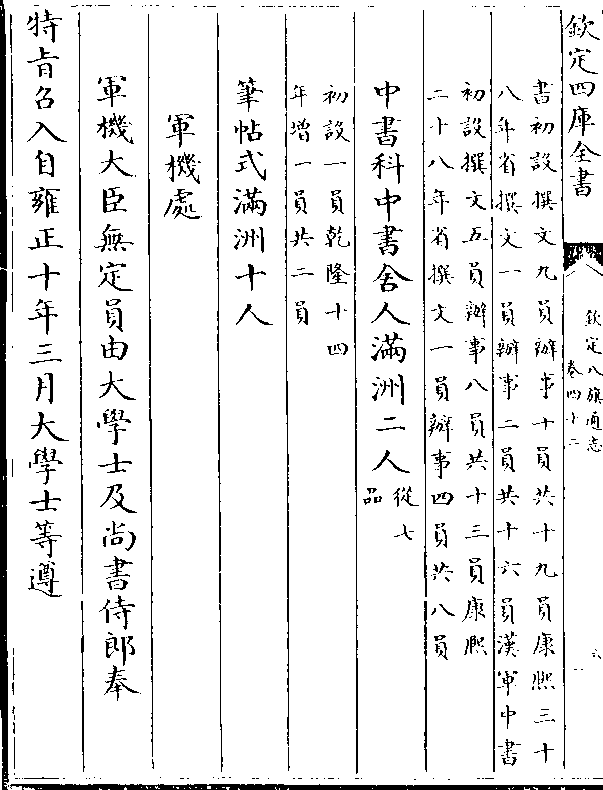 欽定四庫全書
欽定八旗通志
卷四十二
書初設撰文九員辦事十員共十九員康熙三十
八年省撰文一員辦事二員共十六員漢軍中書
初設撰文五員辦事八員共十三員康熙
二十八年省撰文一員辦事四員共八員
中書科中書舍人滿洲二人從七
品
初設一員乾隆十四
年增一員共二員
筆帖式滿洲十人
軍機處
軍機大臣無定員由大學士及尚書侍郎奉
特旨召入自雍正十年三月大學士等遵